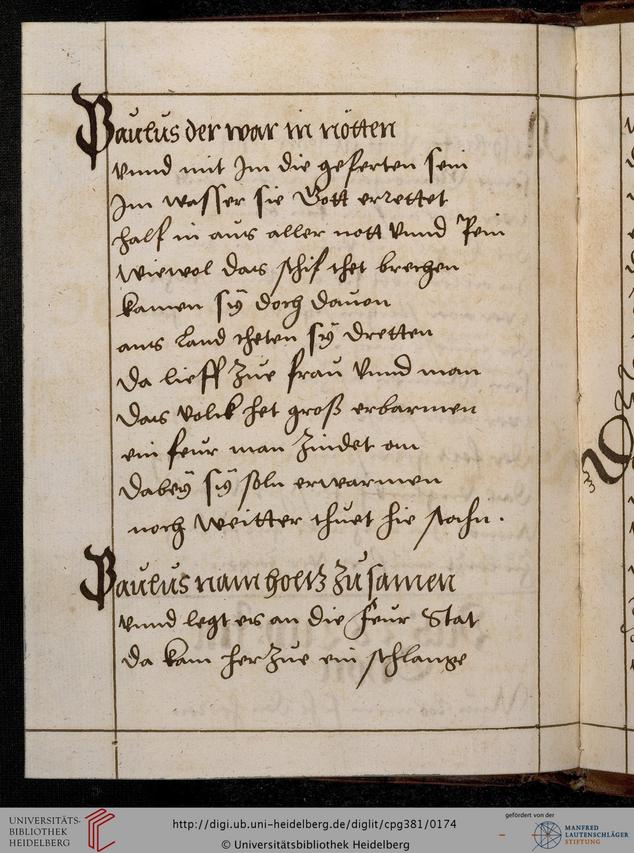 Paulus der war in nötten
vnnd mit Im die geferten sein
Im wasser sie Gott errettet
half in aus aller nott vnnd Pein
wiewol das schif thet brechen
kamen sÿ doch dauon
ans Land theten sÿ dretten
da lieff Zue frau vnnd man
das volck het groß erbarmen
ein feur man Zindet an
dabeÿ sÿ soln erwarmen
noch weitter thuet hie stahn.
Paulus nam holtz Zusamen
vnnd legt es an die Feur Stat
da kam her Zue ein schlange
UNIVERSITÄTS-
BIBLIOTHEK
HEIDELBERG
http://digi.ub.uni-heidelberg.de/diglit/cpg381/0174
© Universitätsbibliothek Heidelberg
gefördert von der
MANFRED
LAUTENSCHLÄGER
STIFTUNG